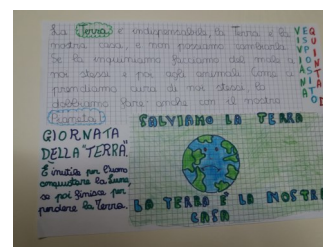 La Terra è indispensabile, la Terra è la
nostra casa, e non possiamo cambiarla.
Se la inquiniamo facciamo del male a
noi stessi e poi agli animali. Come ci
prendiamo cura di noi stessi, lo
dobbiamo fare anche con il nostro
Pianeta!
GIORNATA
DELLA "TERRA".
È inutile per l'uomo
conquistare la Luna,
se poi finisce per
perdere la Terra.
SALVIAMO LA TERRA
LA TERRA È LA NOSTRA
CASA
QUINTA D